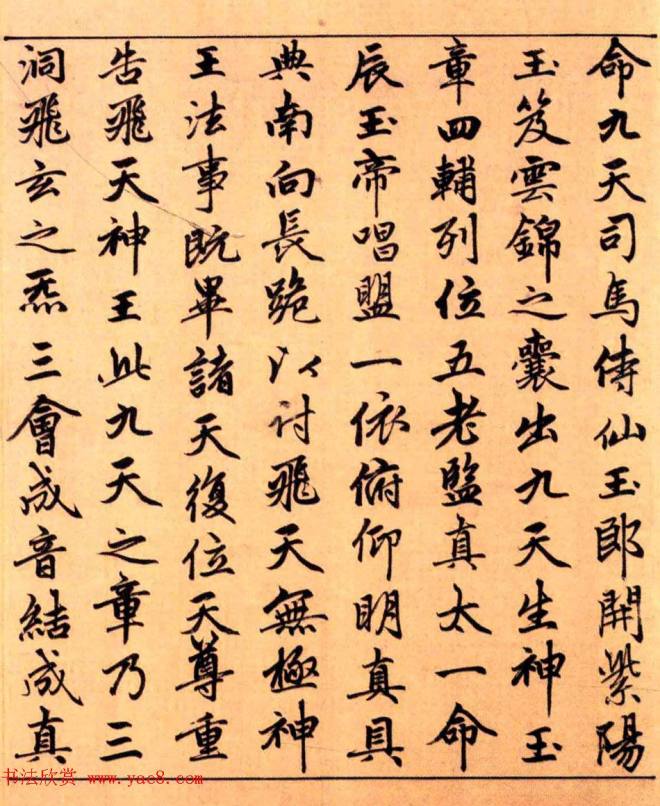 命九天司馬侍仙玉郎開紫陽
玉笈雲錦之囊出九天生神玉
章四輔列位五老監真太一命
辰玉帝唱盟一依俯仰明真具
典南向長跪以討飛天無極神
王法事既畢諸天復位天尊重
告飛天神王此九天之章乃三
洞飛玄之炁三會成音結成真
书法欣赏 www.yac8.com